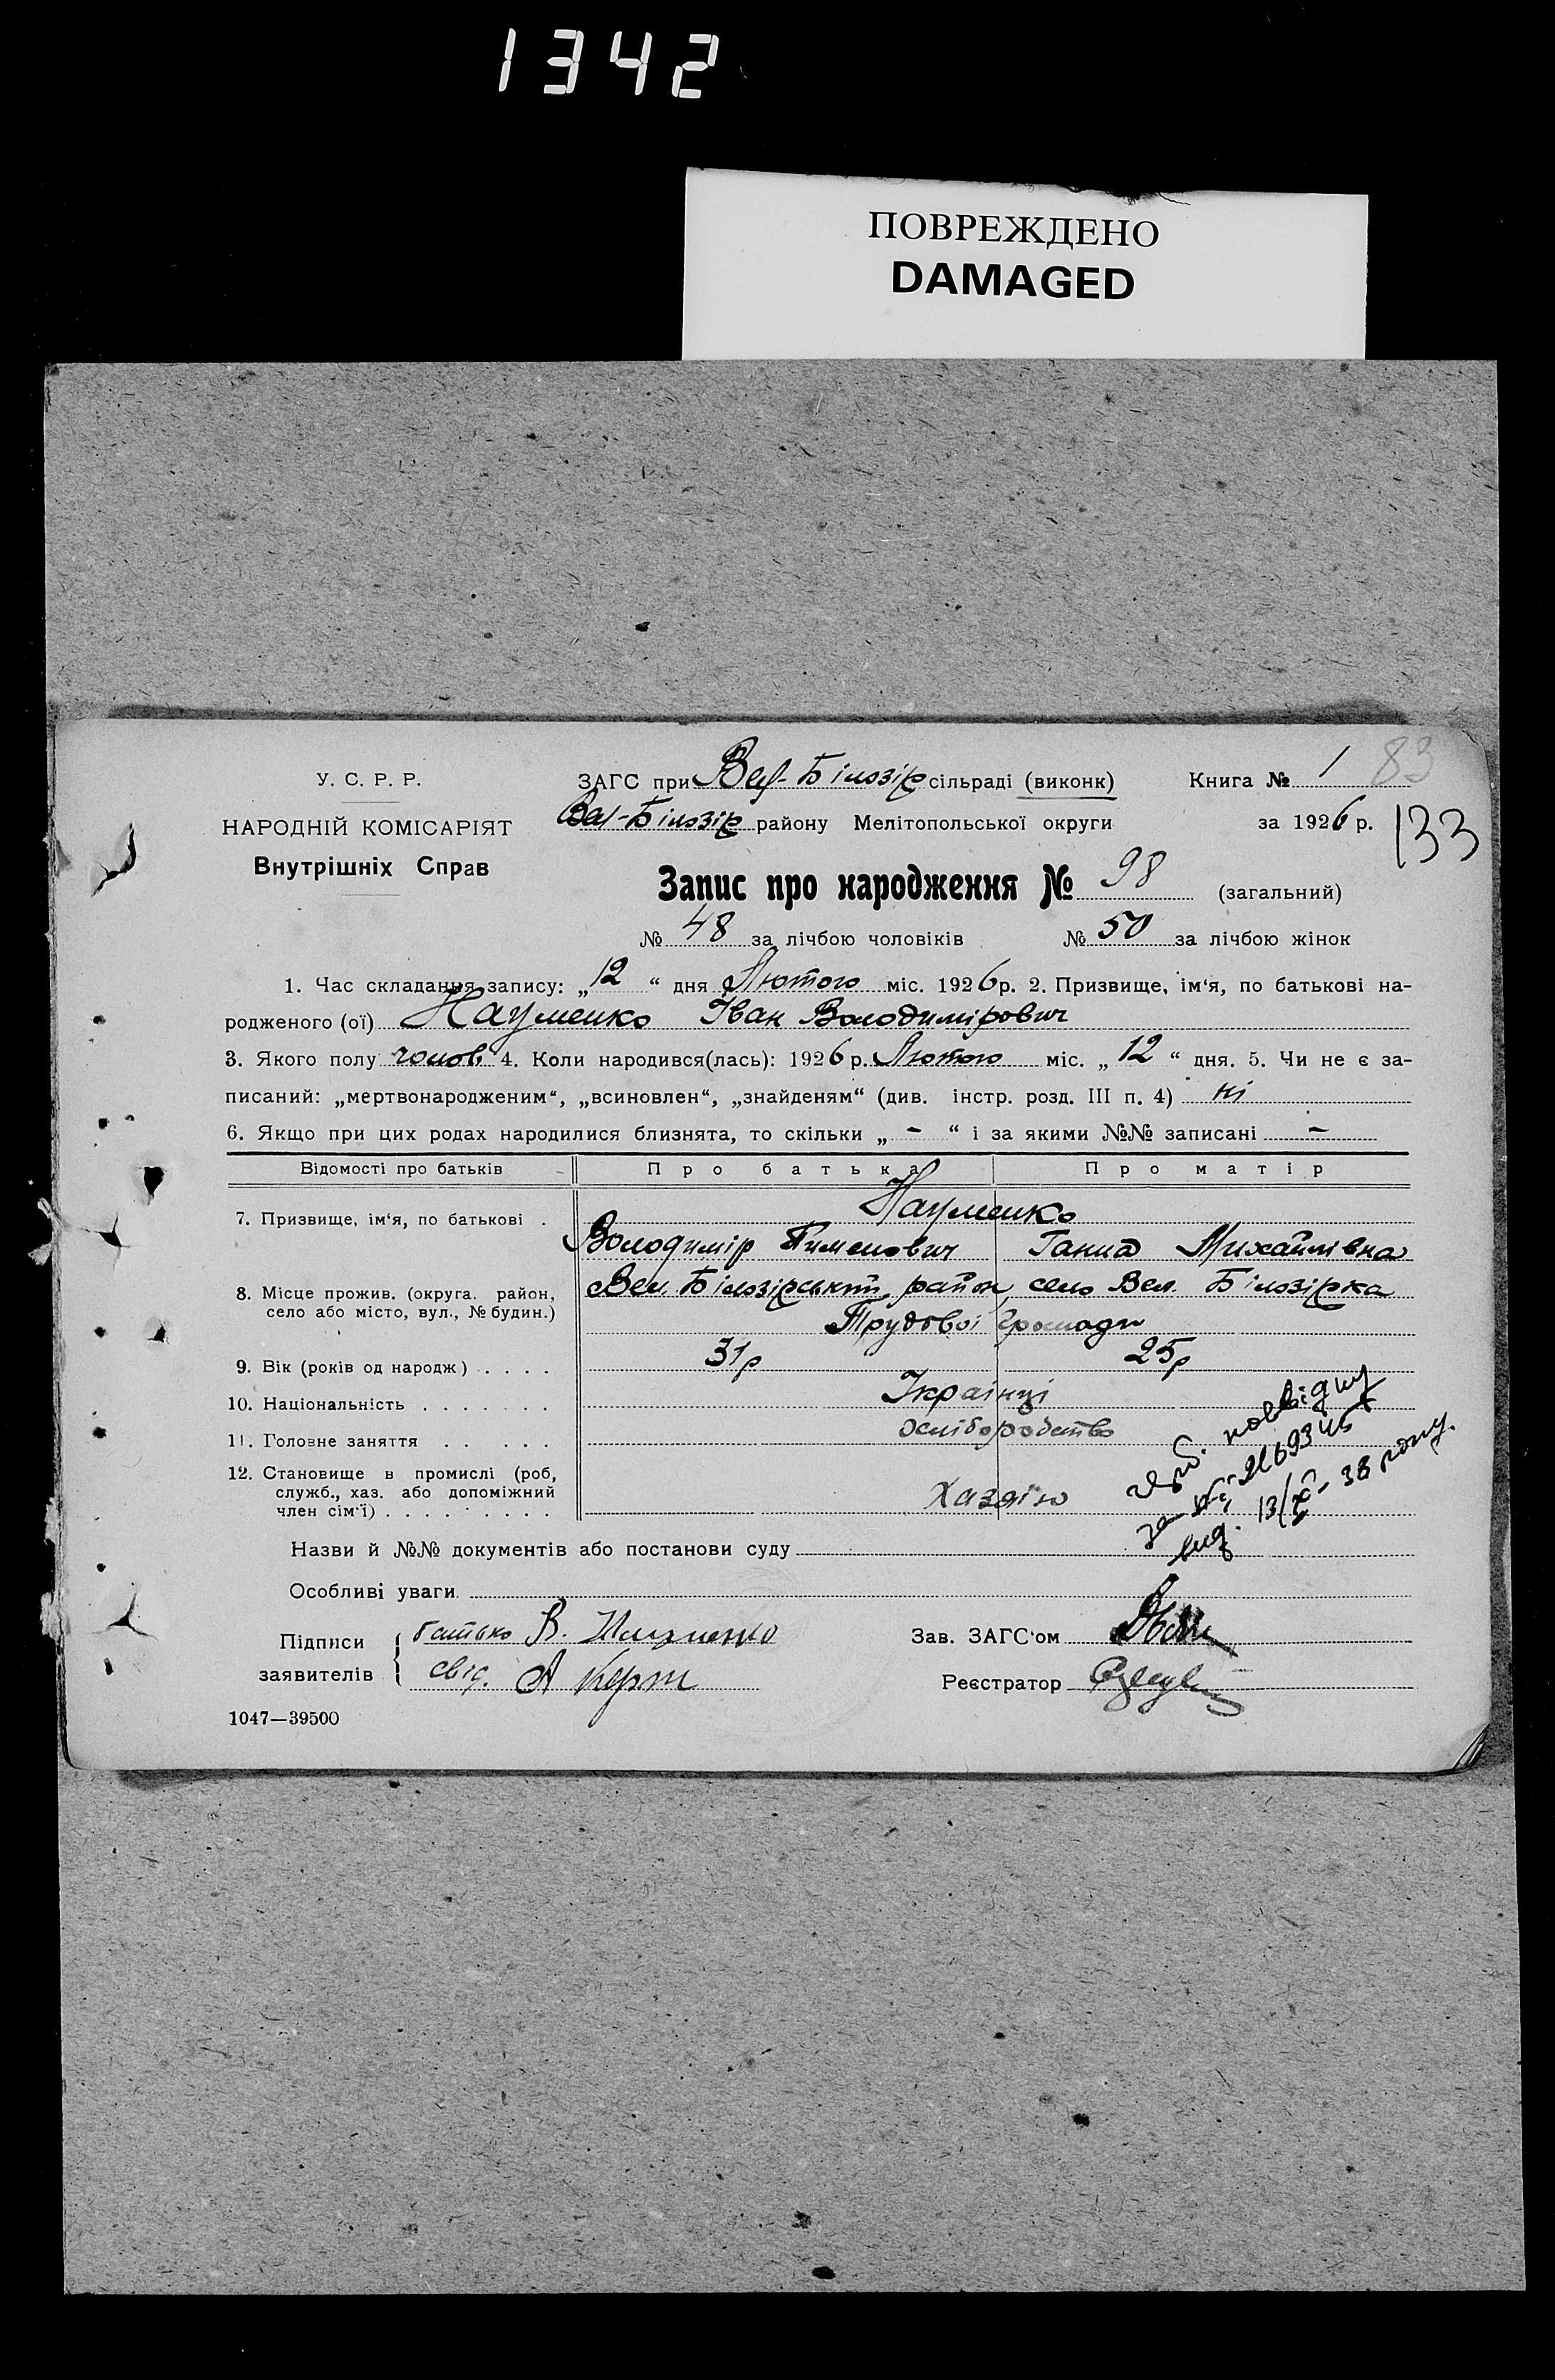 1342
ПОВРЕЖДЕНО
DAMAGED
У. С. Р. Р.
НАРОДНІЙ КОМІСАРІЯТ
Внутрішніх Справ
ЗАГС при Вел-Білозір сільраді (виконк)
Книга № 1 83
Вел-Білозір району Мелітопольської округи
за 1926 р.
133
Запис про народження № 98 (загальний)
№ 48 за лічбою чоловіків № 50 за лічбою жінок
1. Час складання запису: „12“ дня Лютого міс. 1926 р. 2. Призвище, ім‘я, по батькові на-
родженого (ої) Науменко Іван Володимірович
3. Якого полу чолов 4. Коли народився(лась): 1926 р. Лютого міс. „12“ дня. 5. Чи не є за-
писаний: „мертвонародженим“, „всиновлен“, „знайденям“ (див. інстр. розд. III п. 4) ні
6. Якщо при цих родах народилися близнята, то скільки „ - “ і за якими №№ записані -
Відомості про батьків Про батька Про матір
7. Призвище, ім‘я, по батькові .
Науменко
Володимір Пименович Ганна Михайлівна
8. Місце прожив. (округа. район,
село або місто, вул., № будин.)
Вел. Білозірський район, село Вел. Білозірка
Трудової Громади
9. Вік (років од народж) . . . . 31р 25р
10. Національність . . . . . . . Українці
11. Головне заняття . . . . . . хліборобство
12. Становище в промислі (роб,
служб., хаз. або допоміжний
член сім‘ї) . . . . . . . . . .
Хазяїн
вид. 13/X - 38 року.
Назви й №№ документів або постанови суду
Особливі уваги
Підписи
заявителів
батько В. Науменко
свід. А
Зав. ЗАГС‘ом
Реєстратор
1047—39500